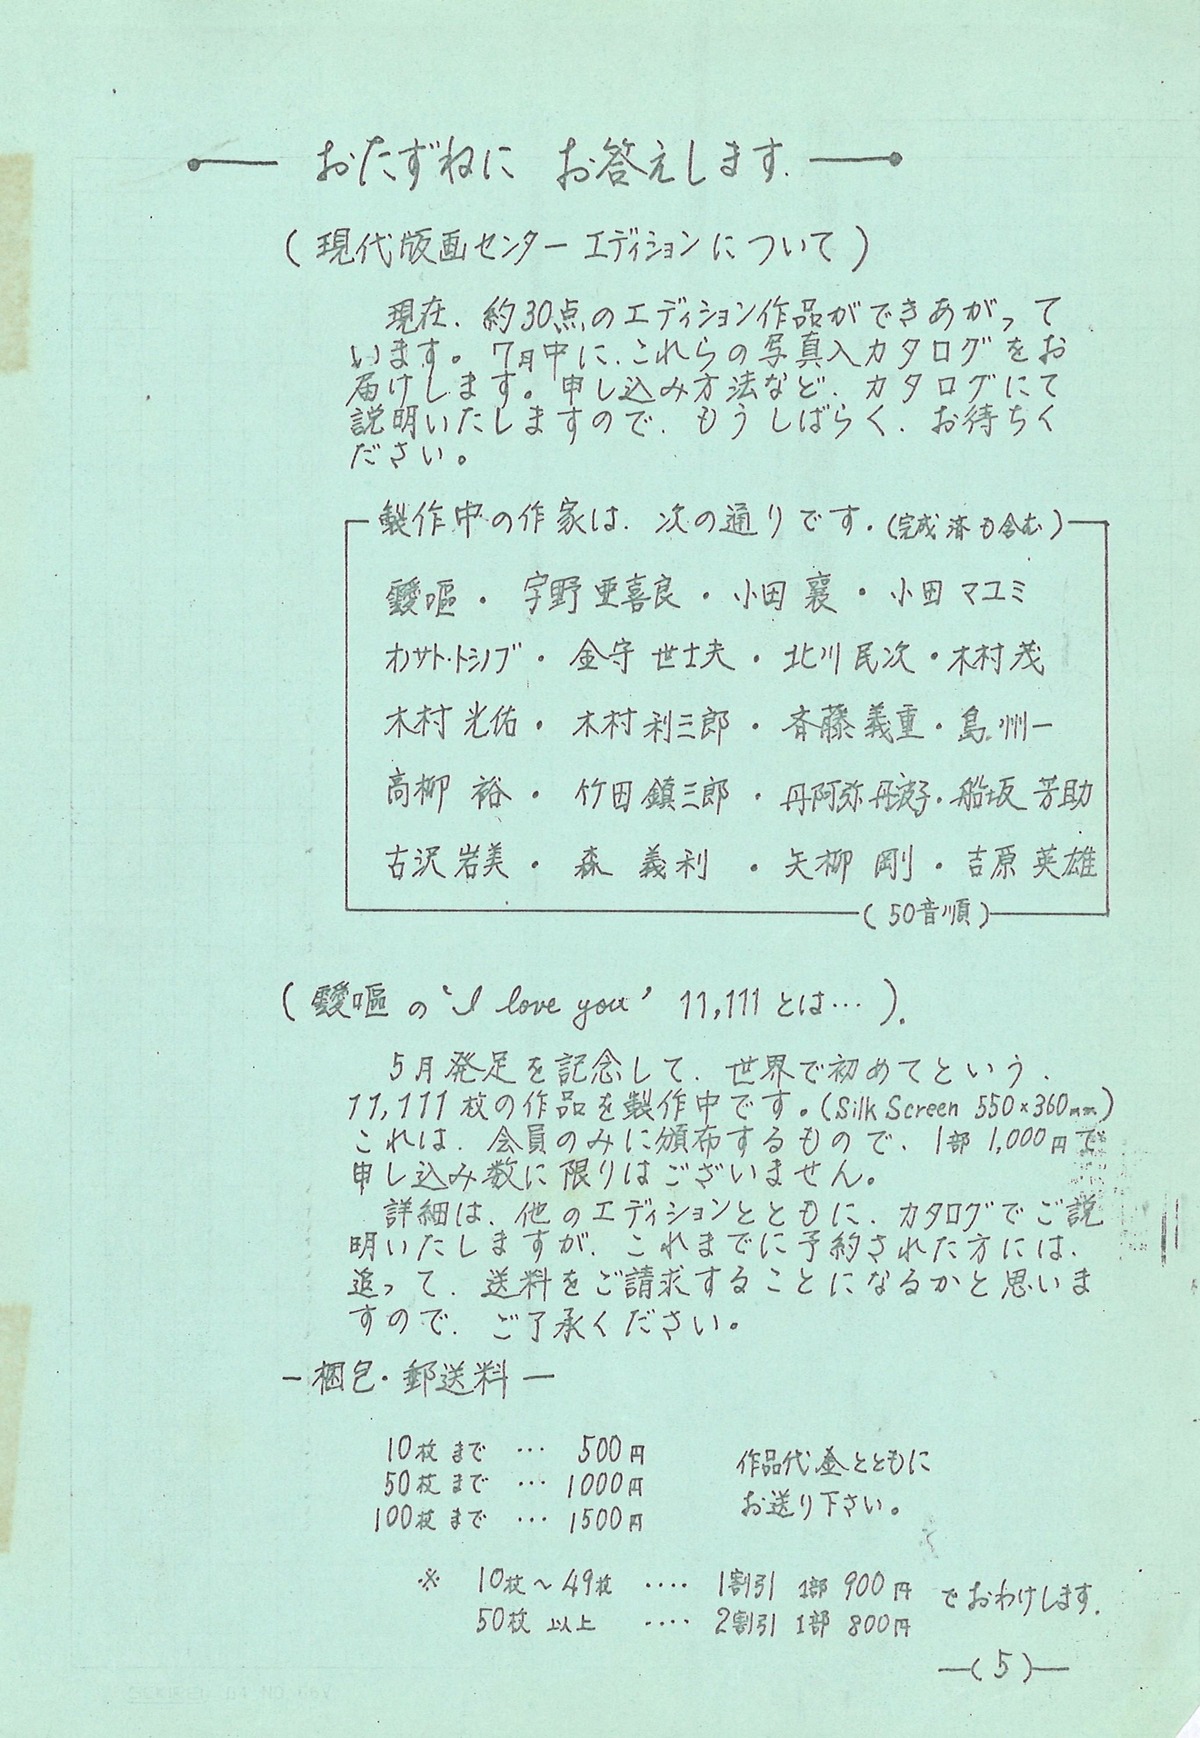 おたずねに お答えします.
(現代版画センター エディションについて)
現在、約30点のエディション作品ができあがって
います。7月中に、これらの写真入カタログをお
届けします。申し込み方法など、カタログにて
説明いたしますので、もうしばらく、お待ちく
ださい。
製作中の作家は、次の通りです.(完成済も含む)
靉嘔・宇野亜喜良・小田 襄・小田マユミ
オノサト・トシノブ・金守 世士夫・北川民次・木村茂
木村光佑・木村利三郎・斉藤義重・島 州一
高柳 裕・竹田鎮三郎・丹阿弥丹波子・船坂 芳助
古沢岩美・森 義利・矢柳 剛・吉原 英雄
(50音順)
(靉嘔の'I love you' 11,111とは…).
5月発足を記念して、世界で初めてという、
11,111枚の作品を製作中です。(Silk Screen 550×360mm)
これは、会員のみに頒布するもので、1部1,000円で
申し込み数に限りはございません。
詳細は、他のエディションとともに、カタログでご説
明いたしますが、これまでに予約された方には、
追って、送料をご請求することになるかと思いま
すので、ご了承ください。
—梱包・郵送料—
10枚まで … 500円
50枚まで … 1000円
100枚まで … 1500円
作品代金とともに
お送り下さい。
※ 10枚〜49枚 …. 1割引 1部 900円 でおわけします.
50枚以上 …. 2割引 1部 800円
—(5)—